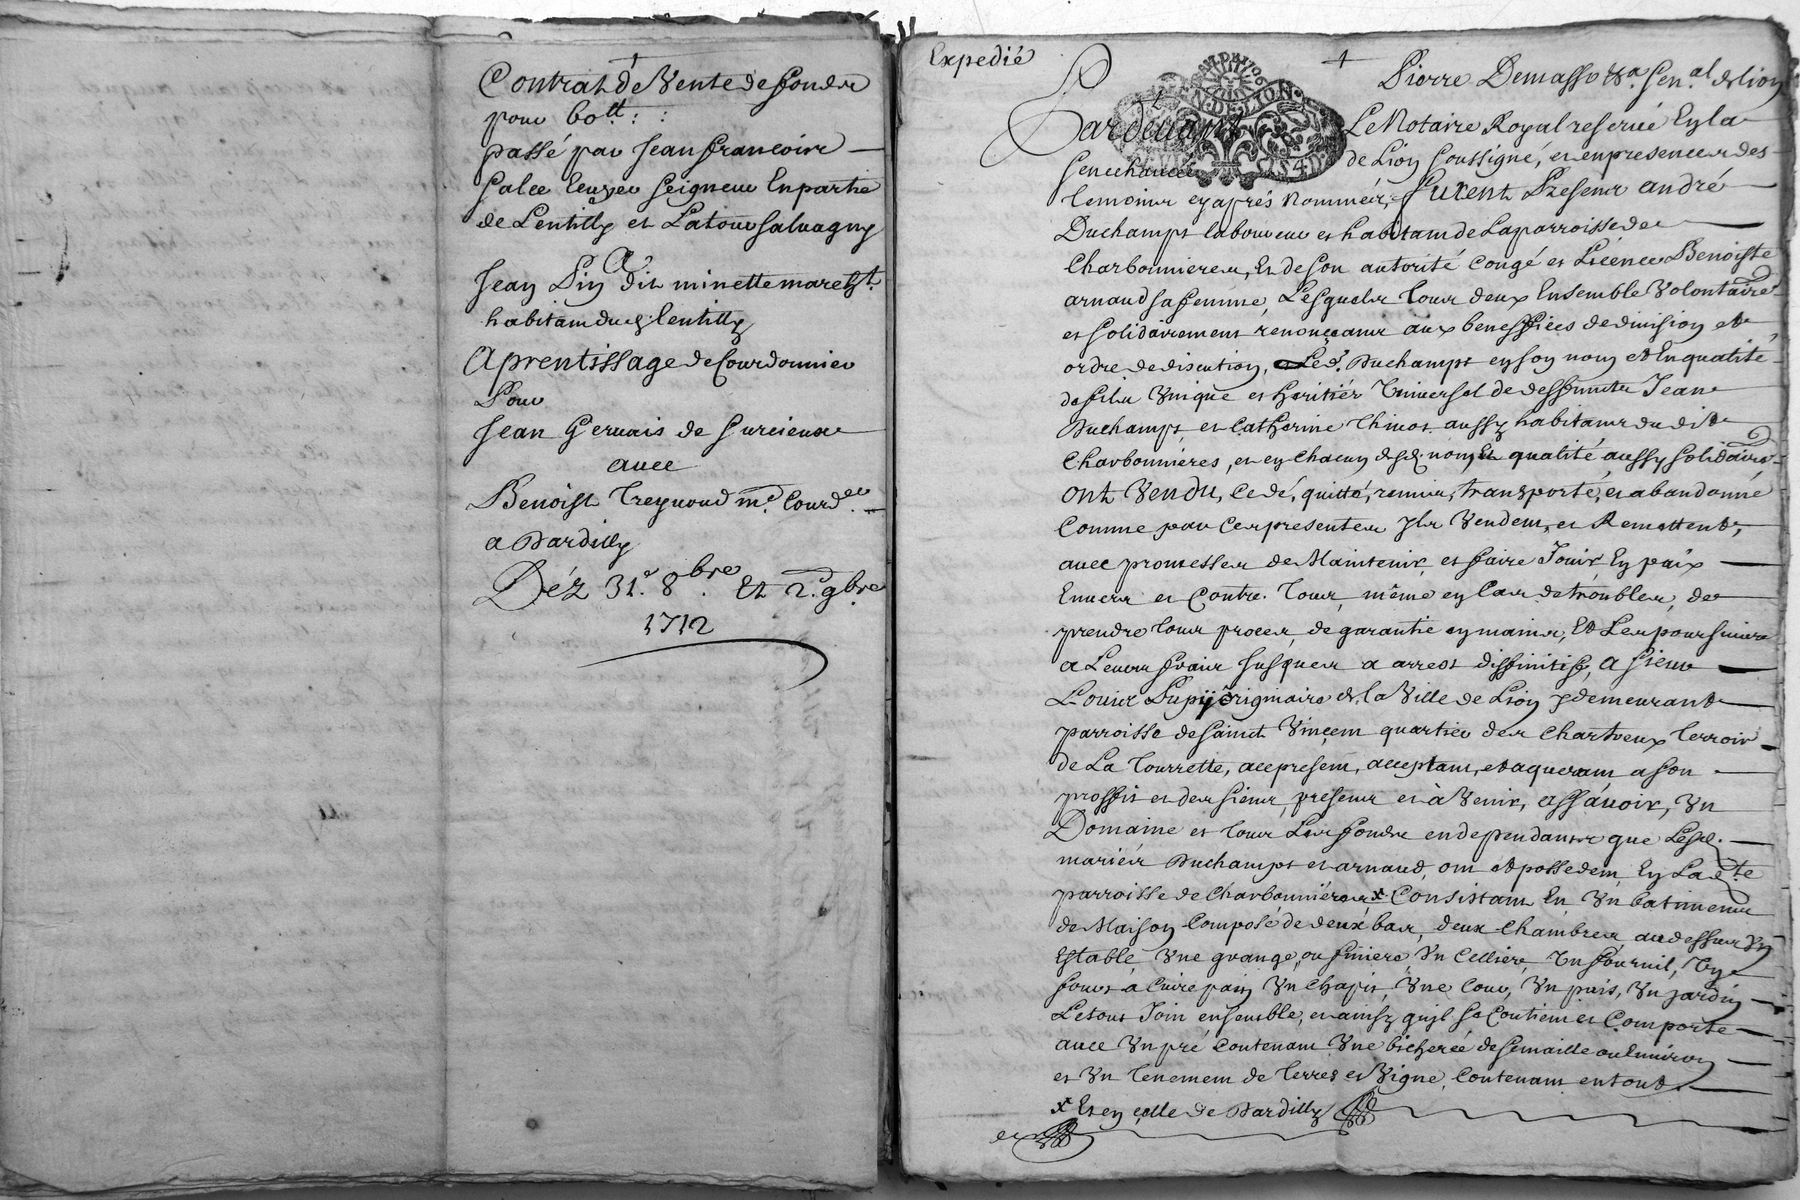 Contrat de Vente de fonds
pour
passé par Jean francoise
Seigneur En partie
de Lentilly et Latour salvagny
Jean Pin dit minette marcht.
habitant de Lentilly
Aprentissage de Courdonnier
Pour
Jean Gervais de Surcieux
avec
Benoist Treynoud md. Courdr.
a Dardilly
Déz 31e. 8bre. Et 2.e 9bre
1712
Expedié
Pierre Demasso Va. Gen.al de lion
Pardevant Le Notaire Royal reservé En la
Senechaucée de Lion soussigné, et en presence des
temoins cy aprés Nommés, furent Presens andré
Duchamps laboureur et habitant de La parroisse de
Charbonnieres, Et de son autorité congé et Licence Benoiste
arnaud sa femme, Lesquels tous deux Ensemble Volontaire
et solidairement renonceans aux beneffices de division et
ordre de discution, Led. Duchamps en son nom et En qualité
de fils Unique et heritiér Universel de deffuncts Jean
Duchamps et Catherine Thinot aussy habitans du dit
Charbonnieres, et en Chacun desd. noms Et qualité aussy solidaire
ont Vendu, Cedé, quitté, remis, transporté, et abandonné
Comme par Ces presentes Ils Vendent, et Remettent,
avec promesses de Maintenir, et faire Jouir En paix
Envers et Contre Tous, même en Cas de troubles, de
prendre tous procez de garantie en mains, Et Les poursuivre
a Leurs frais Jusques a arrest diffinitif, a sieur
Louis Originaire de la Ville de Lion y demeurant
parroisse de Sainct Vincent quartier des Chartreux Terroir
de La Tourrette, acceptant, et aquerant a son
proffit et des siens, presens et à Venir, assavoir, Un
Domaine et tous Les fonds en dependants que Lesd.
mariés Duchamps et arnaud, ont et possedent En Ladte
parroisse de Charbonnieres x Consistant En Un batiment
de Maison Composé de deux bas, deux Chambres au dessus Un
Estable, Une grange, ou finiere, Un Celliere, Un fournil, Un
four à Cuire pain Un Chapit, Une Cour, Un puis, Un jardin
Le tout Join ensemble, et ainsy qu'il se Contient et Comporte
avec Un pré Contenant Une bicherée de semaille ou Environ
et Un Tenement de Terres et Vigne, Contenant en tout
x Et en celle de Dardilly